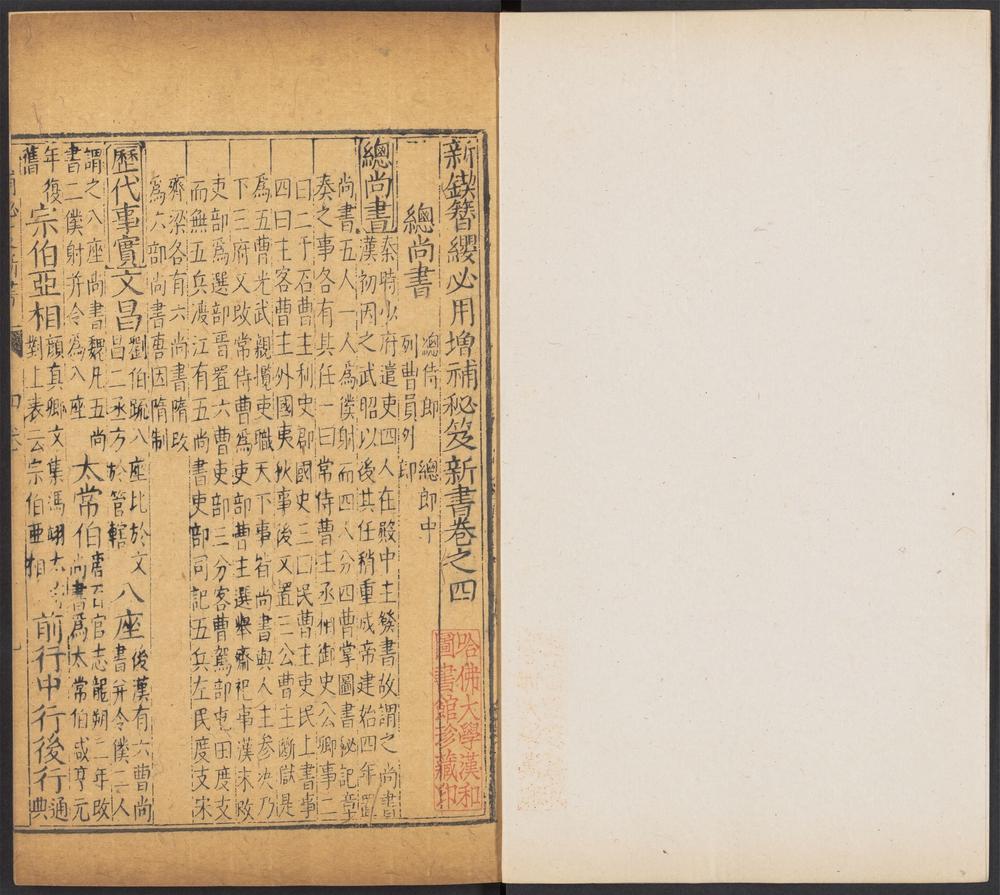 新鍥簪纓必用增補秘笈新書卷之四
總尚書 總侍郎 總郎中
列曹員外郎
總尚書 秦時少府遣吏四人在殿中主發書故謂之尚書
漢初因之武昭以後其任稍重成帝建始四年置
尚書五人一人爲僕射而四人分四曹掌圖書秘記章
奏之事各有其任一曰常侍曹主丞相御史公卿事二
曰二千石曹主刺史郡國史三曰民曹主吏民上書事
四曰主客曹主外國夷狄事後又置三公曹主斷獄是
爲五曹光武親攬吏職天下事皆尚書與人主参决乃
下三府又改常侍曹爲吏部曹主選舉齋祀事漢末改
吏部爲選部晋置六曹吏部三分客曹駕部屯田度支
而無五兵渡江有五尚書吏部祠記五兵左民度支宋
齊梁各有六尚書隋改
爲六部尚書唐因隋制
歷代事實 文昌 劉伯踈八座比於文
昌二丞方於管轄 八座 後漢有六曹尚
書并令僕二人
謂之八座尚書魏凡五尚
書二僕射并令爲八座 太常伯 唐百官志龍朔二年改
尚書爲太常伯咸亨元
年復
舊 宗伯亞相 顔真卿文集馮翊太
對上表云宗伯亞相 前行中行後行 通
典
哈佛大學漢和
圖書館珍藏印